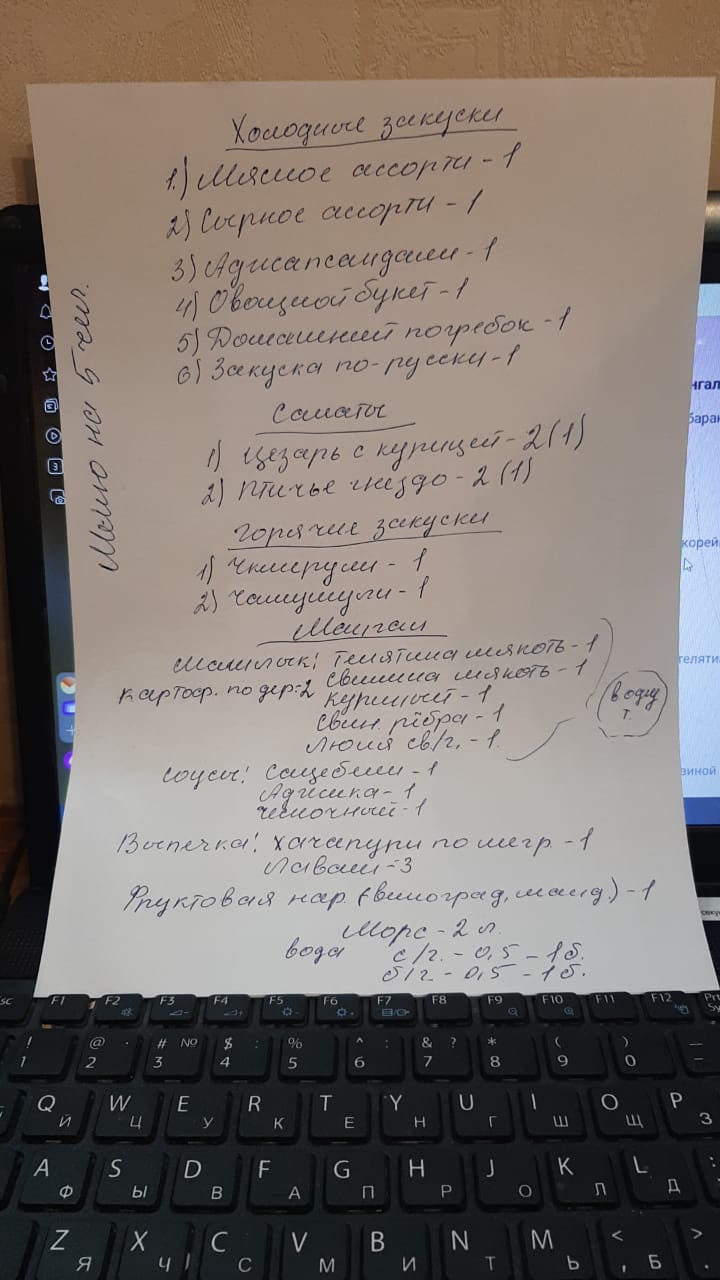 Меню на 5 чел.
Холодные закуски
1.) Мясное ассорти - 1
2) Сырное ассорти - 1
3) Аджапсандали - 1
4) Овощной букет - 1
5) Домашний погребок - 1
6) Закуска по-русски - 1
Салаты
1) Цезарь с курицей - 2 (1)
2) Птичье гнездо - 2 (1)
Горячие закуски
1) Чкмерули - 1
2) Чашушули - 1
Мангал
шашлык: телятина мякоть - 1
свинина мякоть - 1
картоф. по дер.-2 куриный - 1
свин. рёбра - 1
Люля св/г. - 1.
в одну
т.
соусы: Сацебели - 1
Аджика - 1
чесночный - 1
Выпечка: хачапури по мегр. - 1
Лаваш - 3
Фруктовая нар. (виноград, манд.) - 1
Морс - 2 л.
вода с/г. - 0,5 - 1 б.
б/г - 0,5 - 1 б.
нгал
бара
корей
теляти
виной
F1 F2 F3 F4 F5 F6 F7 F8 F9 F10 F11 F12
! @ # № $ : % ^ : & ? * ( )
1 2 3 4 5 6 7 8 9 0
Q W E R T Y U I O P
Й Ц У К Е Н Г Ш Щ З
A S D F G H J K L
Ф Ы В А П Р О Л Д
Z X C V B N M < >
Я Ч С М И Т Ь , Б .